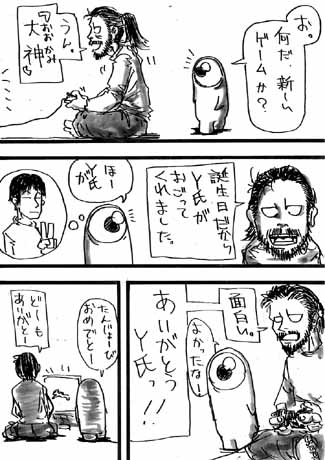 お。
何だ、新しい
ゲームか?
うん。
『おおかみ
大神』
誕生日だから
Y氏が
おごって
くれました。
ほー
Y氏が
面白い。
よかったなー
ありがとう
Y氏っ!!
たんじょーび
おめでとー
どーも
ありがとー